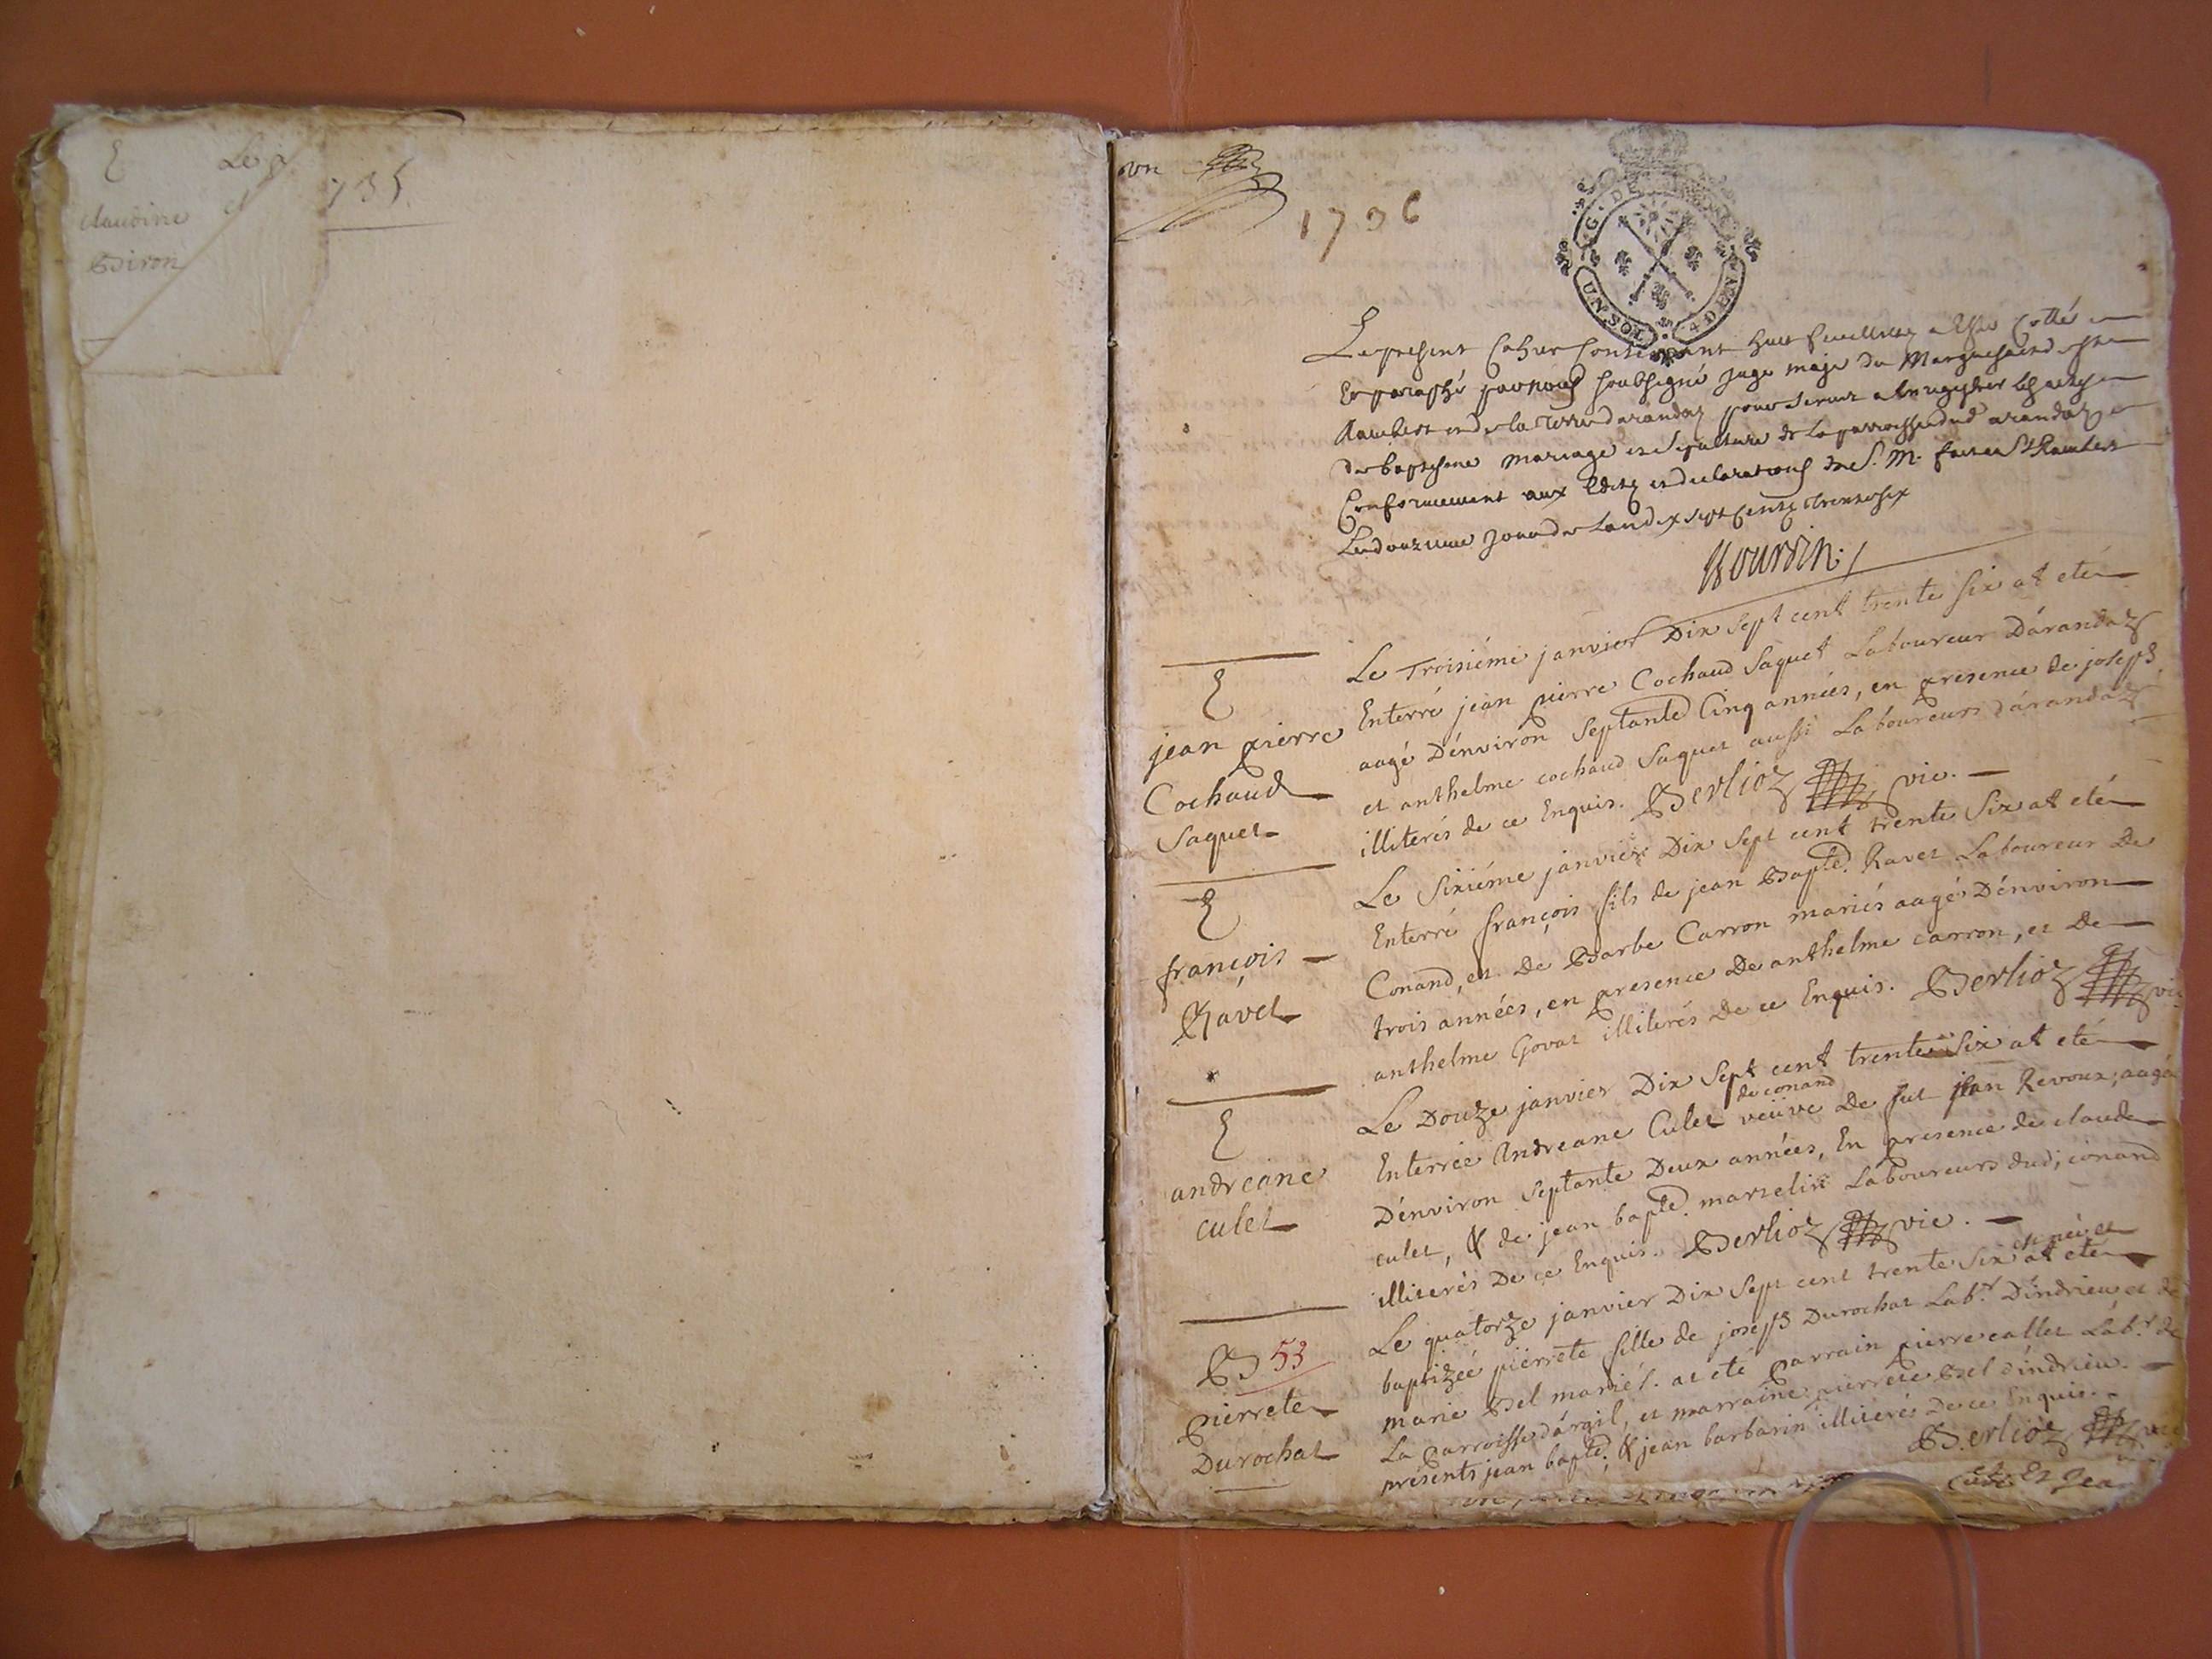 E Le
claudine
Biron
735
un
1736
G. DE
UN SOL 4 DEN
Le present Cahier Contenant huit feuillets a Esté Cotté
Et paraphé par nous soubsigné Juge maje du Marquisat de St
Rambert et de la Terre darandaz pour servir a Enregistrer les actes
de baptesme mariage et sepulture de la parroisse dud arandaz
Conformement aux Edits et declarations de S. M. fait a St Rambert
Le douzieme jour de lan dix sept cents trente six
Bourdin
E
jean pierre
Cochaud
Saquet
Le Troisiéme janvier Dix Sept cent trente six at eté
Enterré jean pierre Cochaud Saquet Laboureur Dárandaz
aagé Dénviron Septante Cinq années, en presence de joseph
et anthelme cochaud Saquet aussi Laboureurs dárandaz
illiterés de ce Enquis. Berlioz vic.
E
françois
Ravet
Le Sixiéme janvier Dix Sept cent trente Six at eté
Enterré françois fils de jean Bapte. Ravet Laboureur De
Conand, et De Barbe Carron mariés aagé Dénviron
trois années, en presence De anthelme carron, et De
anthelme Govat illiterés De ce Enquis. Berlioz vic
E
andreane
culet
Le Douze janvier Dix Sept cent trente Six at eté
de conand
Enterrée Andreane Culet veüve De fut jean Revoux, aagée
Dénviron Septante Deux années, En presence de claude
culet, & de jean bapte. marcelin Laboureurs dud; conand
illiterés De ce Enquis. Berlioz vic.
B 53
Pierrete
Durochat
est née et
Le quatorze janvier Dix Sept cent trente Six at eté
baptizeé pierrete fille de joseph Durochat Labr. Díndrieu et de
marie Bel mariés. at eté Parrain pierre callet Labr. de
La parroisse dárgil, et marraine pierrete Bel d'indrieu.
présents jean bapte. & jean barbarin illiterés De ce Enquis.
Berlioz vic
Et Jean